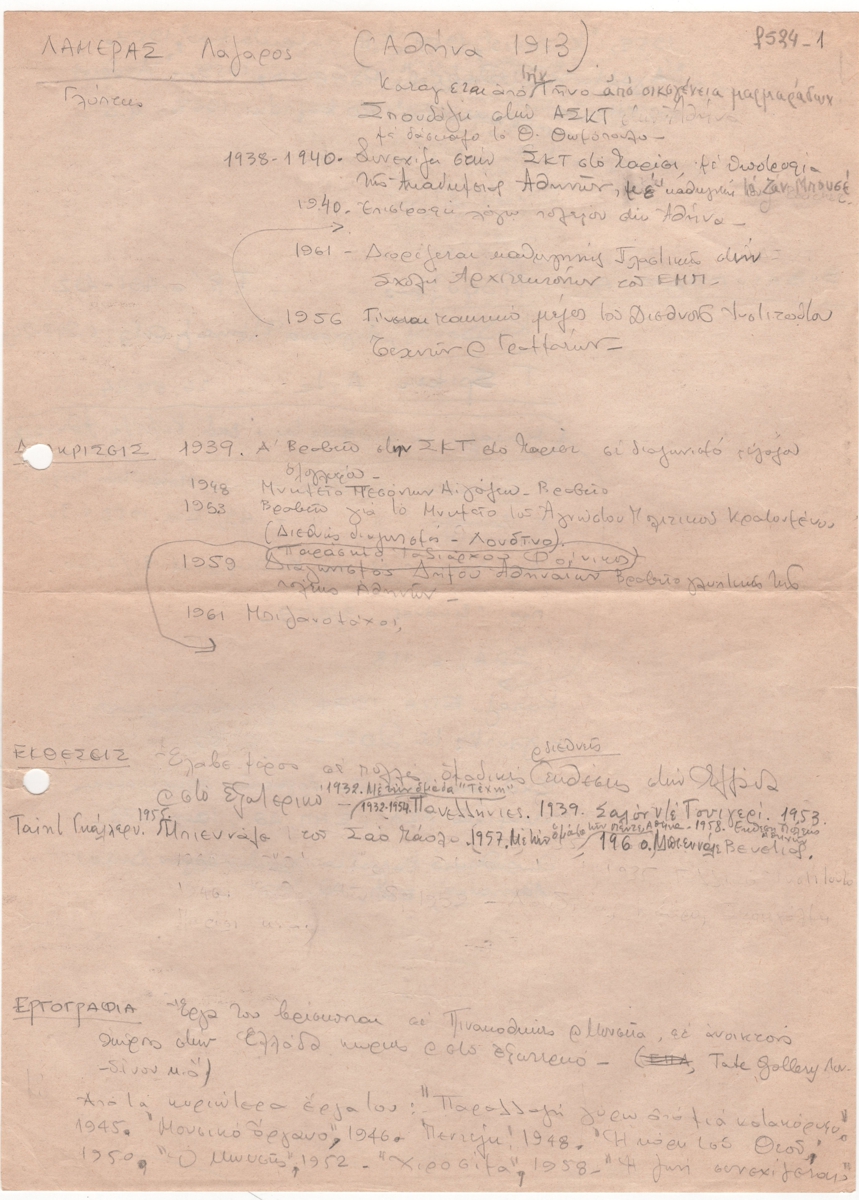 ΛΑΜΕΡΑΣ Λάζαρος (Αθήνα 1913) §534-1
Γλύπτης
Κατάγεται από την Τήνο από οικογένεια μαρμαράδων
Σπουδάζει στην ΑΣΚΤ
με δάσκαλο το Θ. Θωμόπουλο -
1938-1940. Συνεχίζει στην ΣΚΤ στο Παρίσι με υποτροφία
της Ακαδημείας Αθηνών, με καθηγητή τον Ζαν Μπουσέ.
1940. Επιστροφή λόγω πολέμου στην Αθήνα -
1961 - Διορίζεται καθηγητής Πλαστικής στην
σχολή Αρχιτεκτόνων του ΕΜΠ -
1956 Γίνεται τακτικό μέλος του Διεθνούς Ινστιτούτου
Τεχνών & Γραμμάτων -
ΔΙΑΚΡΙΣΕΙΣ 1939. Α' Βραβείο στην ΣΚΤ στο Παρίσι σε διαγωνισμό
1948 Μνημείο Πεσόντων Αιγάλεω - Βραβείο
1953 Βραβείο για το Μνημείο του Αγνώστου Πολιτικού Κρατουμένου
(Διεθνής διαγωνισμός - Λονδίνο).
Παράσημο Ταξιάρχου Φοίνικος
1959 Διαγωνισμός Δήμου Αθηναίων Βραβείο γλυπτικής της
πόλεως Αθηνών -
1961
ΕΚΘΕΣΕΙΣ Έλαβε μέρος σε πολλές ομαδικές & διεθνής εκθέσεις στην Ελλάδα
& στο Εξωτερικό - 1932. Με την ομάδα "Τέχνη"
1932-1954. Πανελλήνιες. 1939. Σαλόν ντέ Τουιλερί. 1953.
Ταίητ Γκάλλερυ. 1955. Μπιεννάλε του Σάο Πάολο. 1957. Με την ομάδα των πέντε, Αθήνα. 1958.
1960. Μπιεννάλε Βενετίας.
ΕΡΓΟΓΡΑΦΙΑ Έργα του βρίσκονται σε Πινακοθήκες & Μουσεία, σε ανοικτούς
χώρους στην Ελλάδα κυρίως & στο εξωτερικό - (ΕΠΑ, Tate Gallery Λον-
δίνου κ.ά)
Από τα κυριώτερα έργα του: "Παραλλαγή γύρω από μιά κατακόρυφο"
1945. "Μουσικό όργανο", 1946. "Πεντέλη" 1948. "Η κόρη του Θεού",
1950, "Ο Μπουκές", 1952 - "Χιροσίμα", 1958 - "Η ζωή συνεχίζεται"